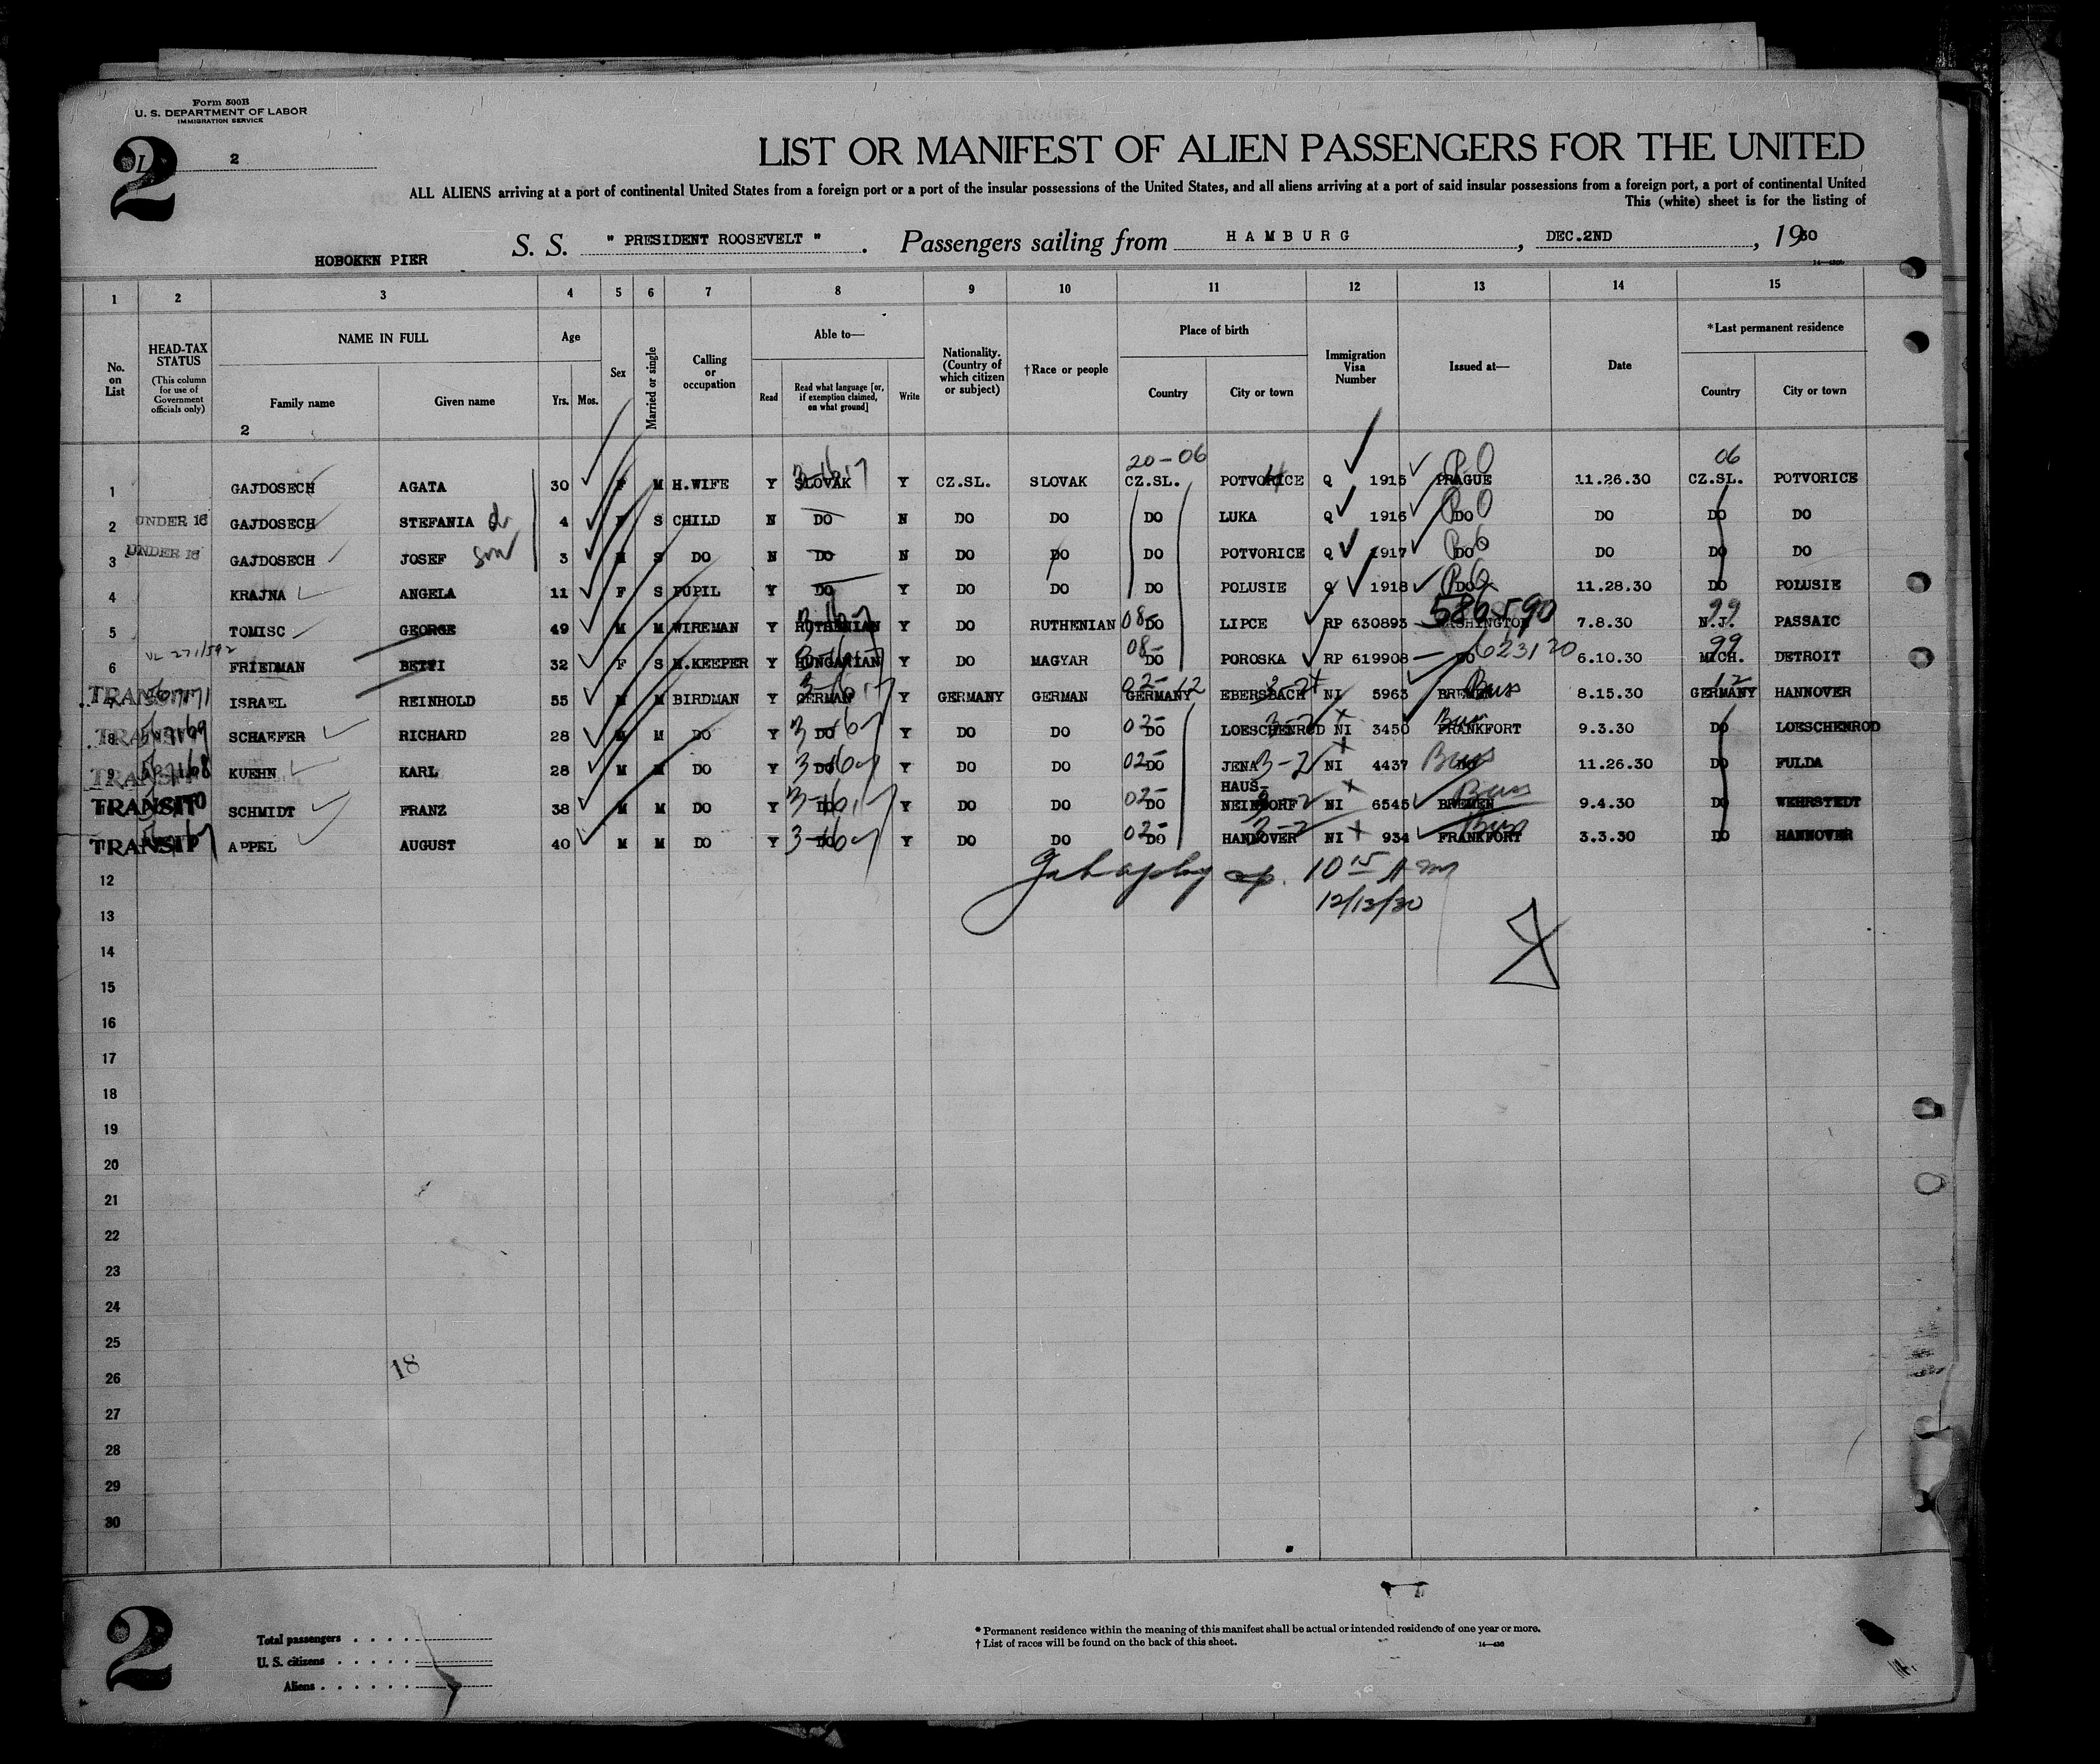 Form 500B
U. S. DEPARTMENT OF LABOR
IMMIGRATION SERVICE
2
L 2
LIST OR MANIFEST OF ALIEN PASSENGERS FOR THE UNITED
ALL ALIENS arriving at a port of continental United States from a foreign port or a port of the insular possessions of the United States, and all aliens arriving at a port of said insular possessions from a foreign port, a port of continental United
This (white) sheet is for the listing of
HOBOKEN PIER S. S. " PRESIDENT ROOSEVELT " . Passengers sailing from HAMBURG , DEC.2ND , 1930
1 2 3 4 5 6 7 8 9 10 11 12 13 14 15
No. on List
HEAD-TAX STATUS
(This column for use of Government officials only)
NAME IN FULL
Family name Given name
2
Age
Yrs. Mos.
Sex
Married or single
Calling or occupation
Able to—
Read
Read what language [or, if exemption claimed, on what ground]
Write
Nationality. (Country of which citizen or subject)
† Race or people
Place of birth
Country City or town
Immigration Visa Number
Issued at—
Date
* Last permanent residence
Country City or town
20-06 06
1 GAJDOSECH AGATA 30 F M H.WIFE Y SLOVAK Y CZ.SL. SLOVAK CZ.SL. POTVORICE Q 1915 PRAGUE 11.26.30 CZ.SL. POTVORICE
2 UNDER 16 GAJDOSECH STEFANIA 4 F S CHILD N DO N DO DO DO LUKA Q 1916 DO DO DO DO
3 UNDER 16 GAJDOSECH JOSEF son 3 M S DO N DO N DO DO DO POTVORICE Q 1917 DO DO DO DO
4 KRAJNA ANGELA 11 F S PUPIL Y DO Y DO DO DO POLUSIE Q 1918 DO 11.28.30 DO POLUSIE
586590 99
5 TOMISC GEORGE 49 M M WIREMAN Y RUTHENIAN Y DO RUTHENIAN 08- DO LIPCE RP 630893 WASHINGTON 7.8.30 N.J. PASSAIC
6 FRIEDMAN BETTI 32 F S H.KEEPER Y HUNGARIAN Y DO MAGYAR 08- DO POROSKA RP 619908 DO 623120 6.10.30 99 MICH. DETROIT
TRANSIT ISRAEL REINHOLD 55 M M BIRDMAN Y GERMAN Y GERMANY GERMAN 02- GERMANY 12 EBERSBACH NI 5963 BREMEN 8.15.30 12 GERMANY HANNOVER
8 TRANSIT SCHAEFER RICHARD 28 M M DO Y DO Y DO DO 02- DO LOESCHENROD NI 3450 FRANKFORT 9.3.30 DO LOESCHENROD
9 TRANSIT KUEHN KARL 28 M M DO Y DO Y DO DO 02- DO JENA 3-2 NI 4437 DO 11.26.30 DO FULDA
TRANSIT SCHMIDT FRANZ 38 M M DO Y DO Y DO DO 02- DO HAUS-NEINDORF NI 6545 BREMEN 9.4.30 DO WEHRSTEDT
TRANSIT APPEL AUGUST 40 M M DO Y DO Y DO DO 02- DO HANNOVER NI 934 FRANKFORT 3.3.30 DO HANNOVER
12 10 15 A m
12/12/30
13
14
15
16
17
18
19
20
21
22
23
24
25
26 18
27
28
29
30
2
Total passengers
U. S. citizens
Aliens
* Permanent residence within the meaning of this manifest shall be actual or intended residence of one year or more.
† List of races will be found on the back of this sheet.